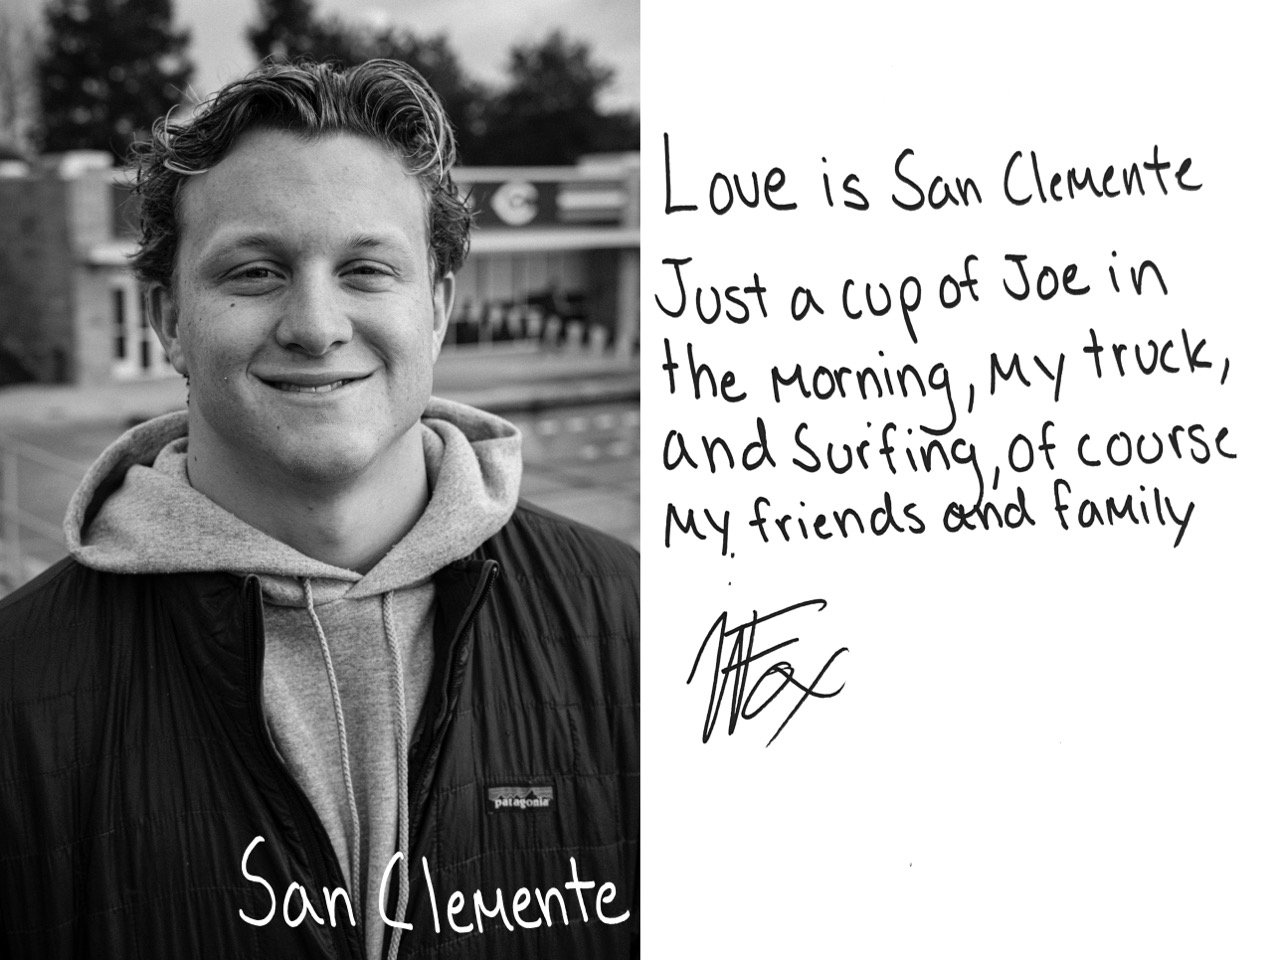 patagonia
San Clemente
Love is San Clemente
Just a cup of Joe in
the morning, my truck,
and Surfing, of course
my friends and family
Fox